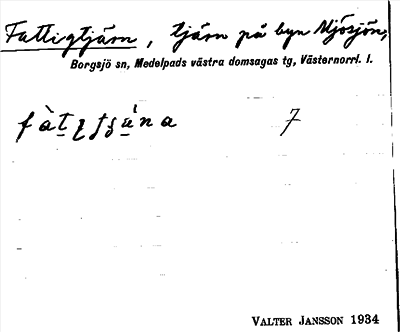 Fattigtjärn, tjärn på byn Mjösjön,
Borgsjö sn, Medelpads västra domsagas tg, Västernorrl. l.
7
VALTER JANSSON 1934